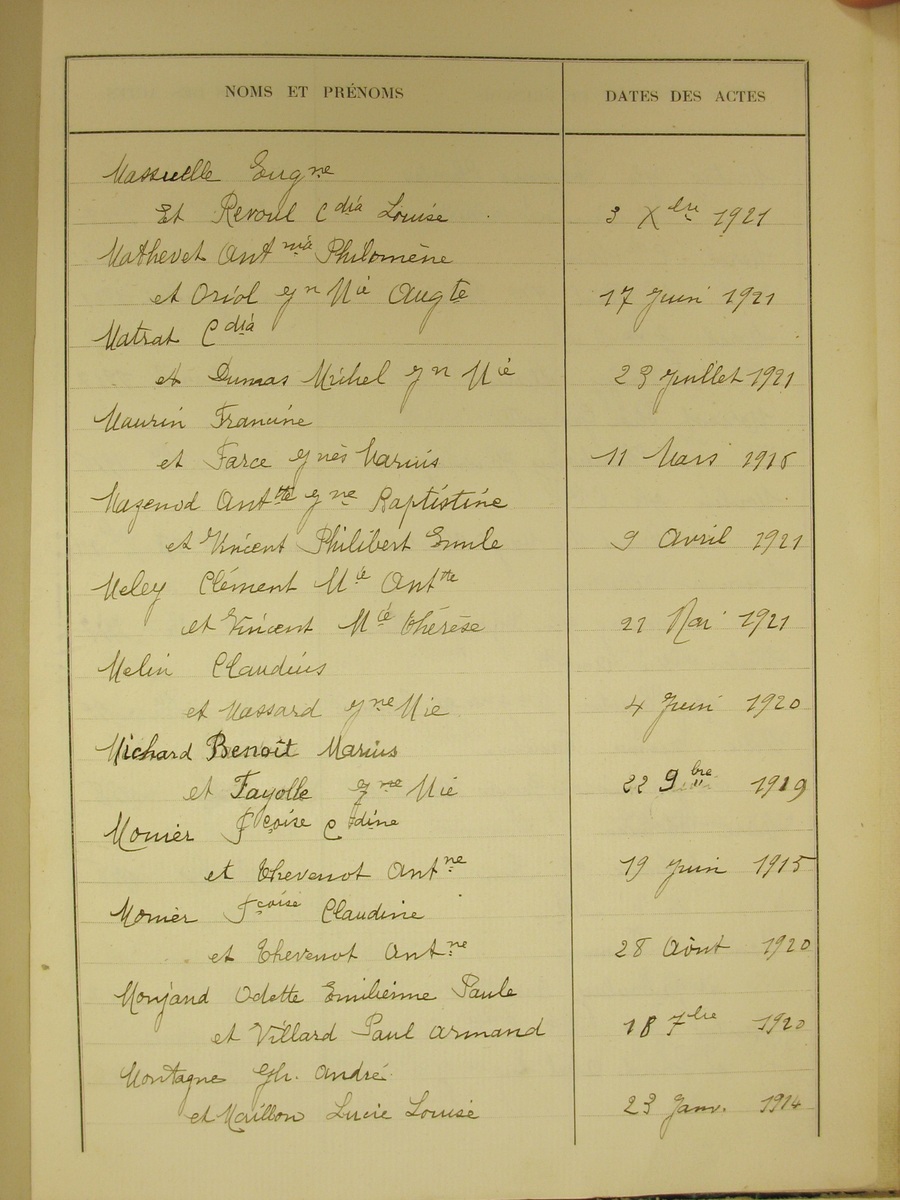 NOMS ET PRÉNOMS
DATES DES ACTES
Massuelle Eug ne
Et Revoul C dia Louise 3 X bre 1921
Mathevet Ant Philomène
et Oriol Jn Mie Aug te 17 Juin 1921
Matrat C dia
et Dumas Michel Jn Mie 23 Juillet 1921
Maurin Francine
et Farce Marius 11 Mars 1916
Mazenod Ant tte J ne Baptistine
et Vincent Philibert Emile 9 Avril 1921
Meley Clément Mie Ant tte
et Vincent Mie Thérèse 21 Mai 1921
Melin Claudius
et Massard J ne Mie 4 Juin 1920
Michard Benoît Marius
et Fayolle J ne Mie 22 9 bre 1919
Monier Fçoise C dine
et Thevenot Ant ne 19 Juin 1915
Monier Fçoise Claudine
et Thevenot Ant ne 28 Août 1920
Monjand Odette Emilienne Paule
et Villard Paul Armand 18 7 bre 1920
Montagne Jh. André
et Maillon Lucie Louise 23 Janv. 1914